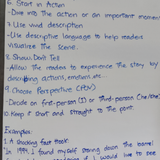 6. Start in Action
- Dive into the action or an important moment
7. Use vivid description
- Use descriptive language to help readers
Visualize the scene.
8. Show, Don't Tell
Allow the readers to experience the story by
describing actions, emotions, etc...
9. Choose Perspective (POV)
- Decide on first-person (I) or Third person (he/she)
10. Keep it short and straight to the point.
Examples:
1. A shocking fast
"In 1994, I found myself staring down the barrel
I would like to see